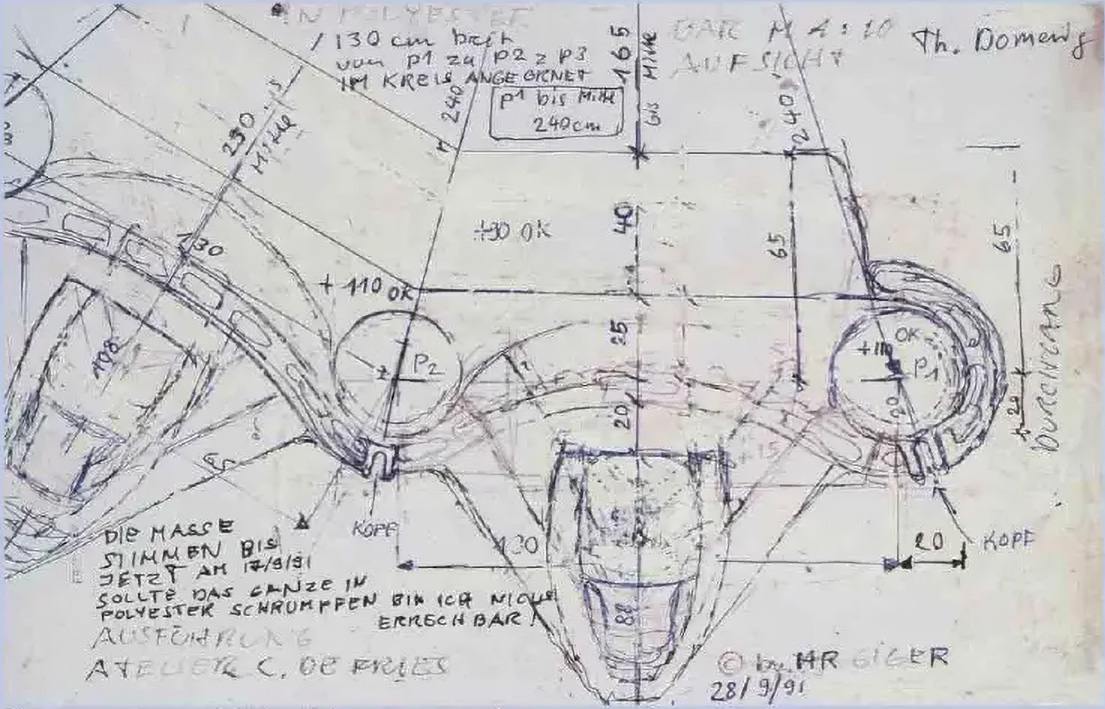 IN POLYESTER
130 cm breit
von P1 zu P2 z P3
IM KREIS ANGEORNET
P1 bis Mitte
240cm
BAR M 1:10
AUFSICHT
Th. Domenig
165
bis Mitte
240
240
290
Mitte
130
+90 OK
40
65
65
+110 OK
25
P2
OK
+110
P1
20
20
20
108
65
+15
DURCHGANG
KOPF
130
20
KOPF
88
DIE MASSE
STIMMEN BIS
JETZT AM 17/9/91
SOLLTE DAS GANZE IN
POLYESTER SCHRUMPFEN BIN ICH NICHT
ERRECHBAR!
AUSFÜHRUNG
ATELIER C. DE FRIES
© by HR GIGER
28/9/91